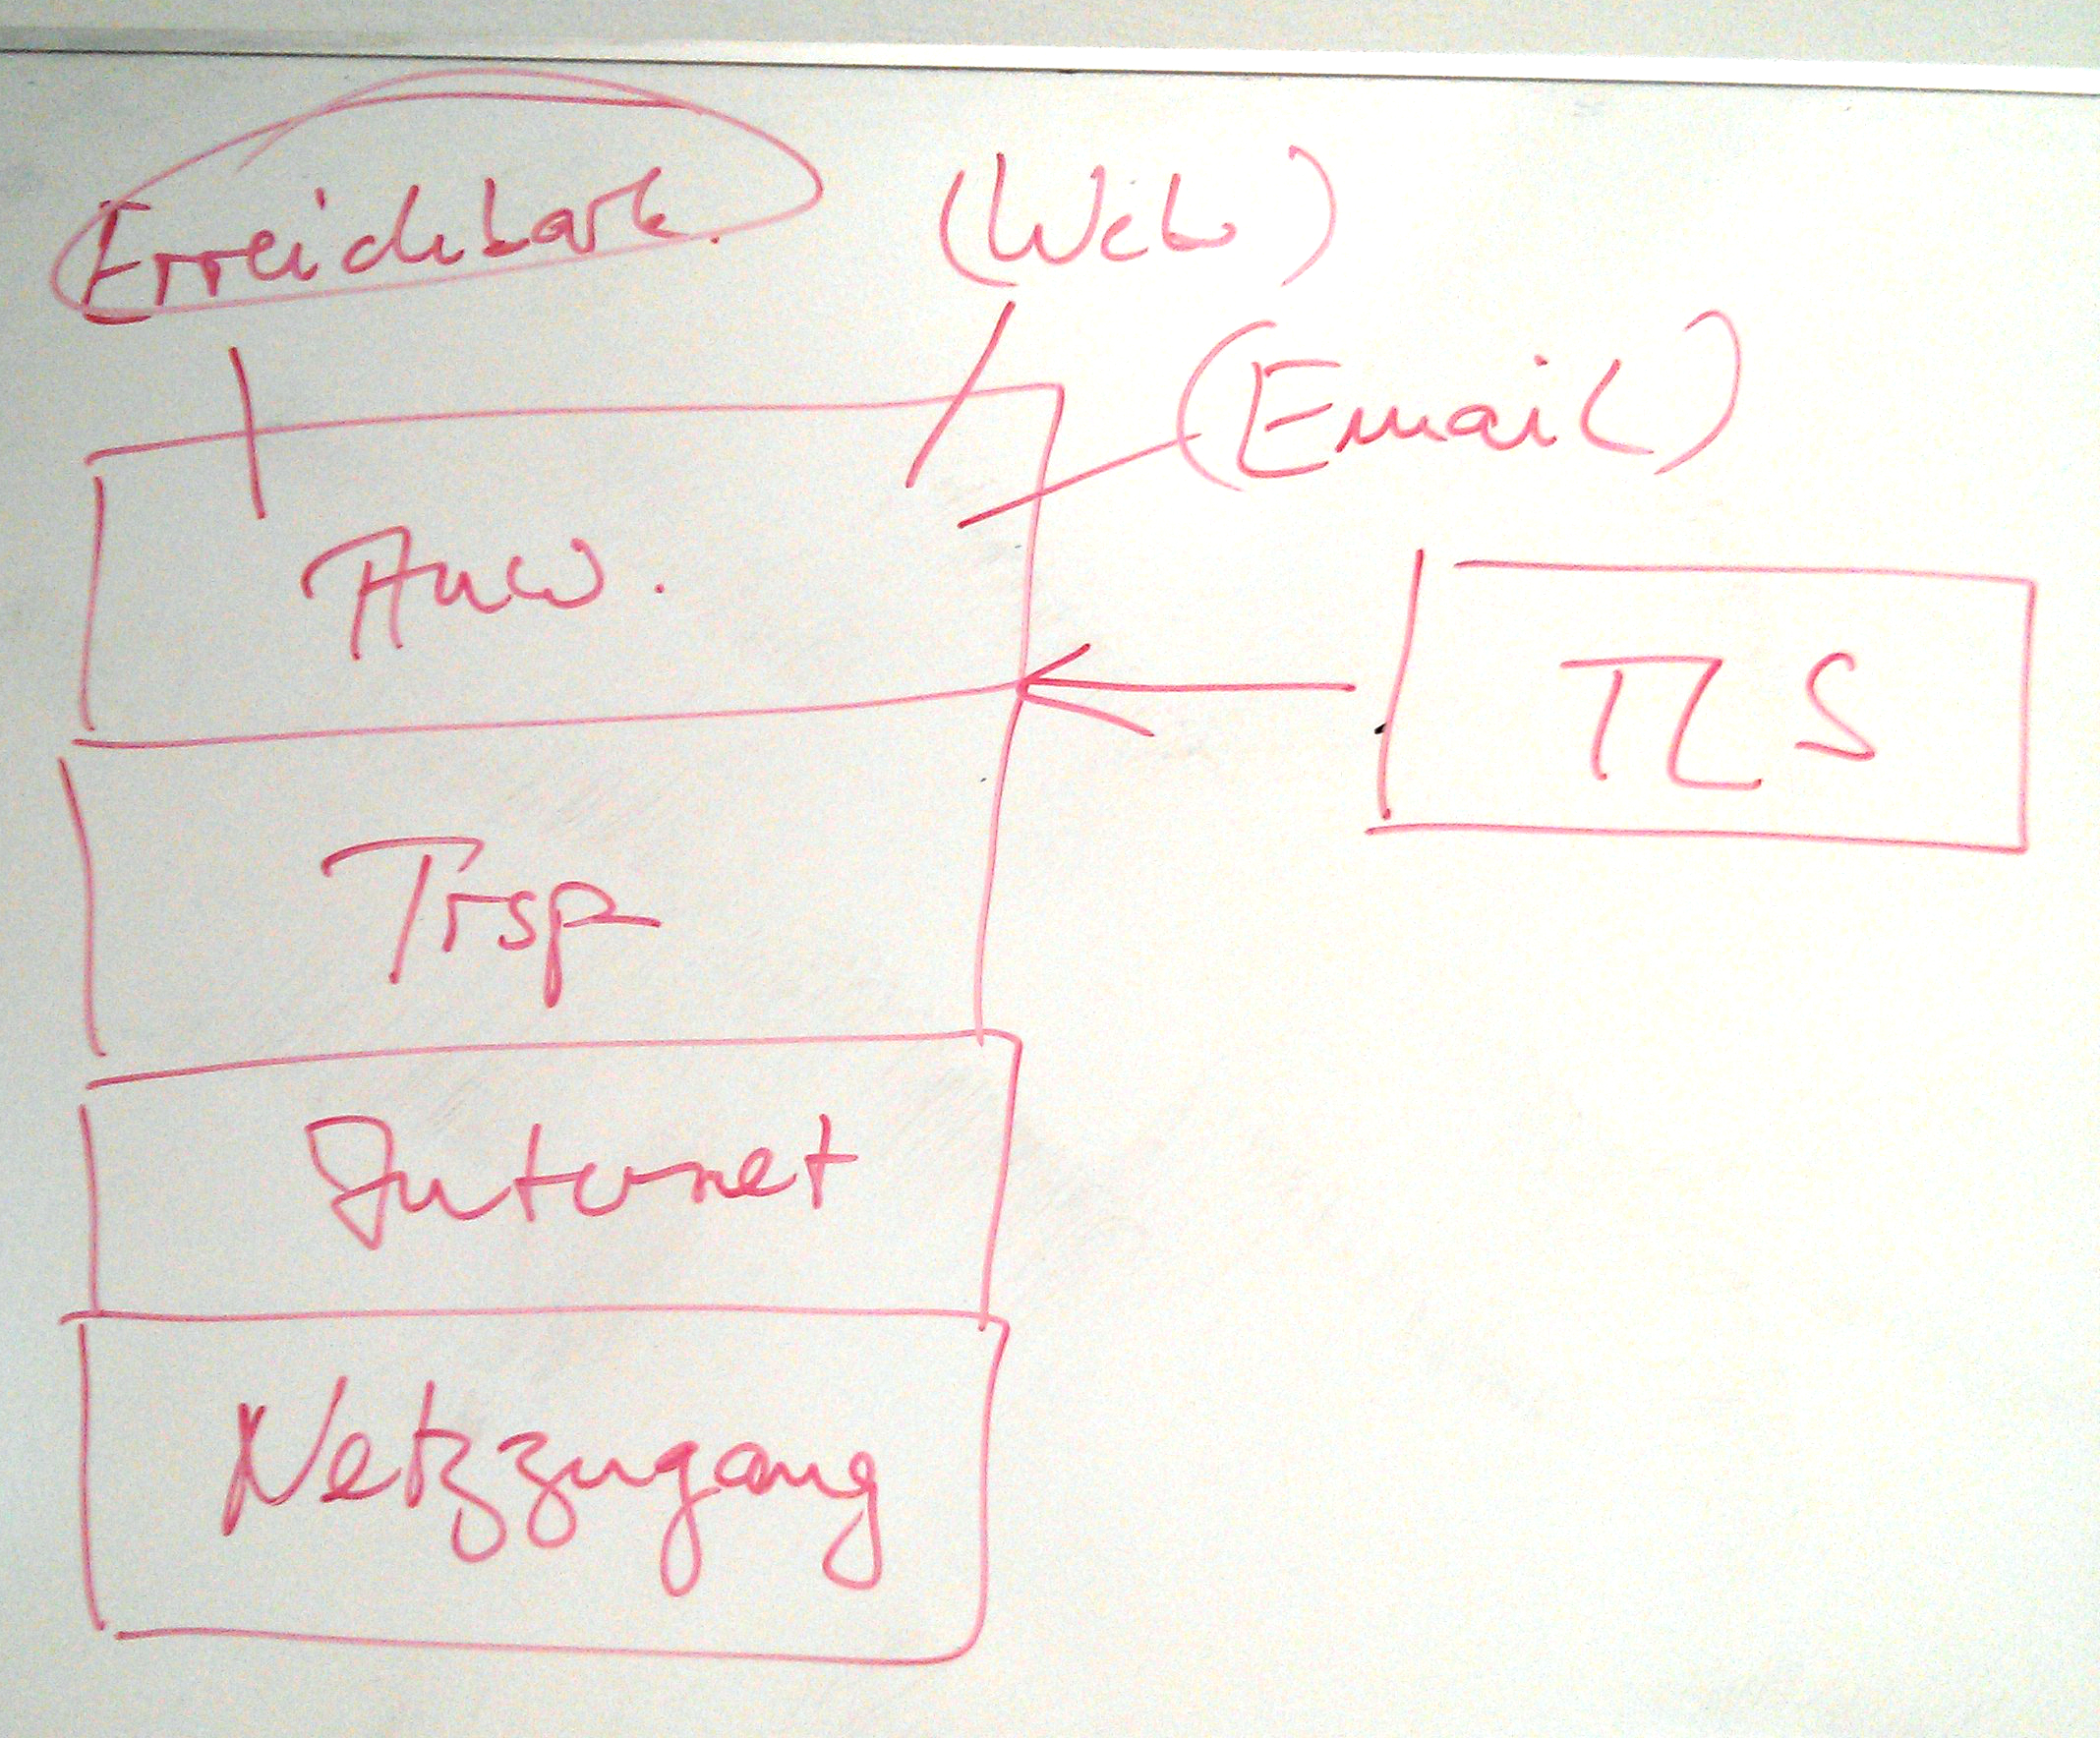 Erreichbark.
(Web)
(Email)
Anw.
TLS
Trsp
Internet
Netzzugang